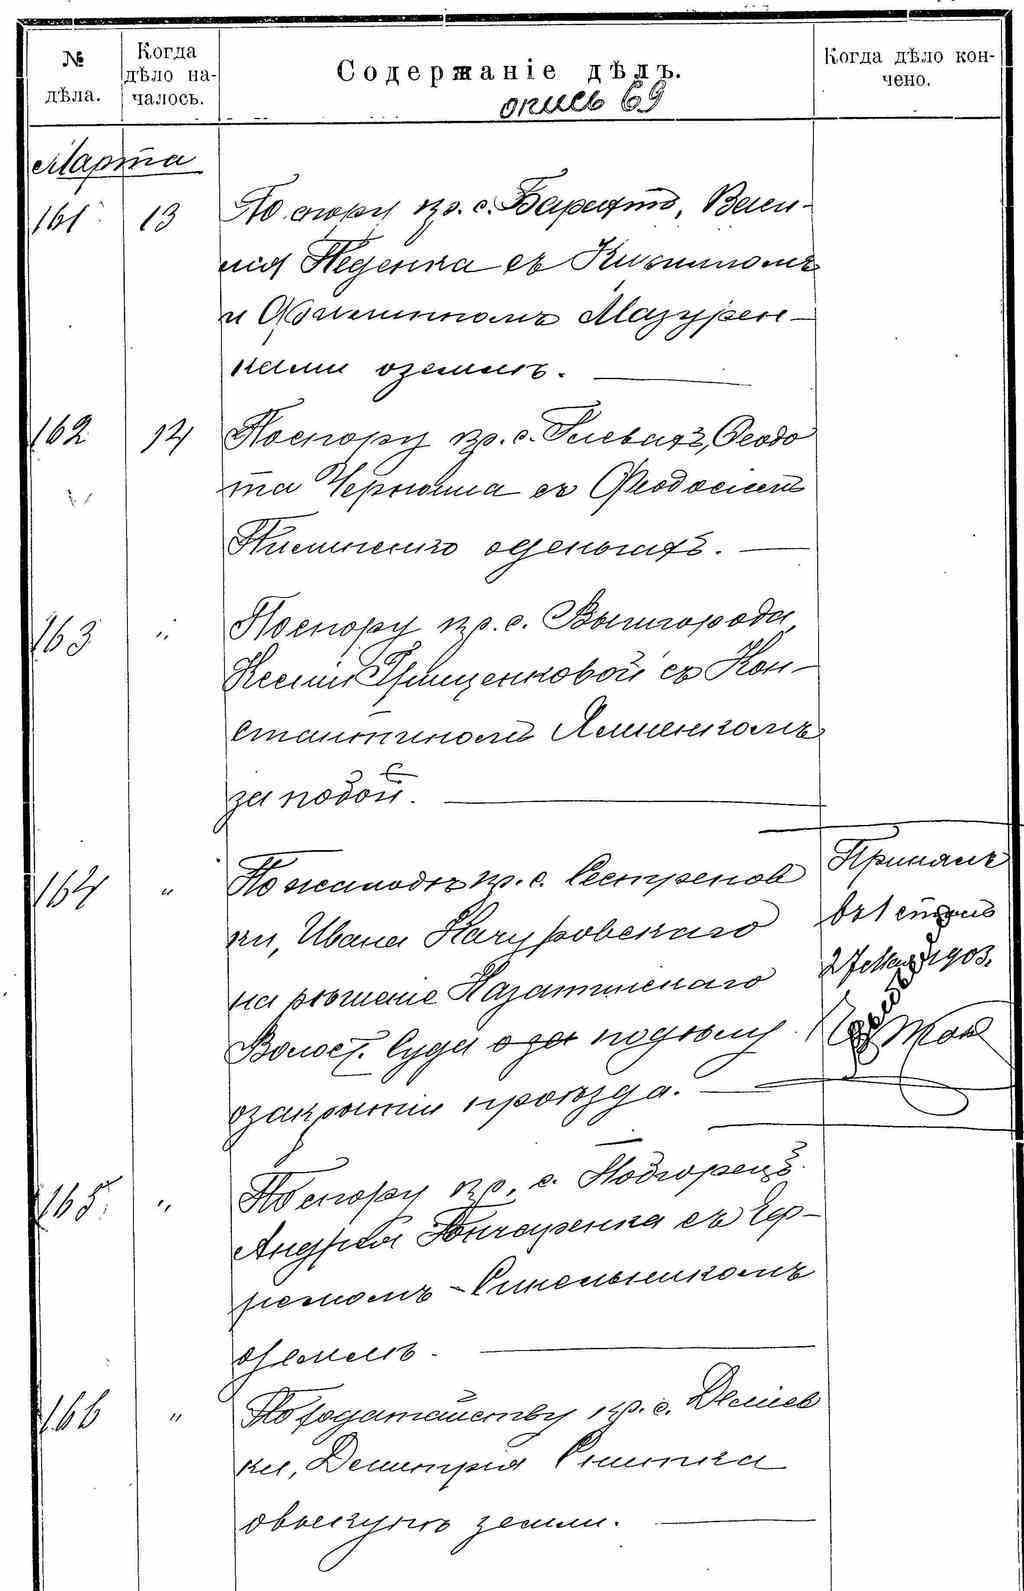 № дѣла.
Когда дѣло на-чалось.
Содержаніе дѣлъ.
Когда дѣло кон-чено.
опись 69
Марта
161 13 По спору кр. с. Барахтъ, Васи-
лія Педенка съ Кирилломъ
и Филиппомъ Мазурен-
ками о землѣ.
162 14 По спору кр. с. Глевахъ, Феодо
та Черныша съ Феодосіемъ
Пилипенко о деньгахъ.
163 " По спору кр. с. Вышгорода,
Ксеніи Грищенковой съ Кон-
стантиномъ Ялиненкомъ
за побои.
164 " По жалобѣ кр. с. Сестренов
ки, Ивана Качуровскаго
на рѣшеніе Казатинскаго
Волост. Суда о за по дѣлу
о закрытіи проѣзда.
Принялъ
въ 1 столъ
27 1903.
165 " По спору кр. с. Подгорецъ
Андрея Гончаренка съ Еф-
ремомъ Синельникомъ
о землѣ.
166 " По ходатайству кр. с. Деміев
ки, Димитрія Снитка
о выкупѣ земли.